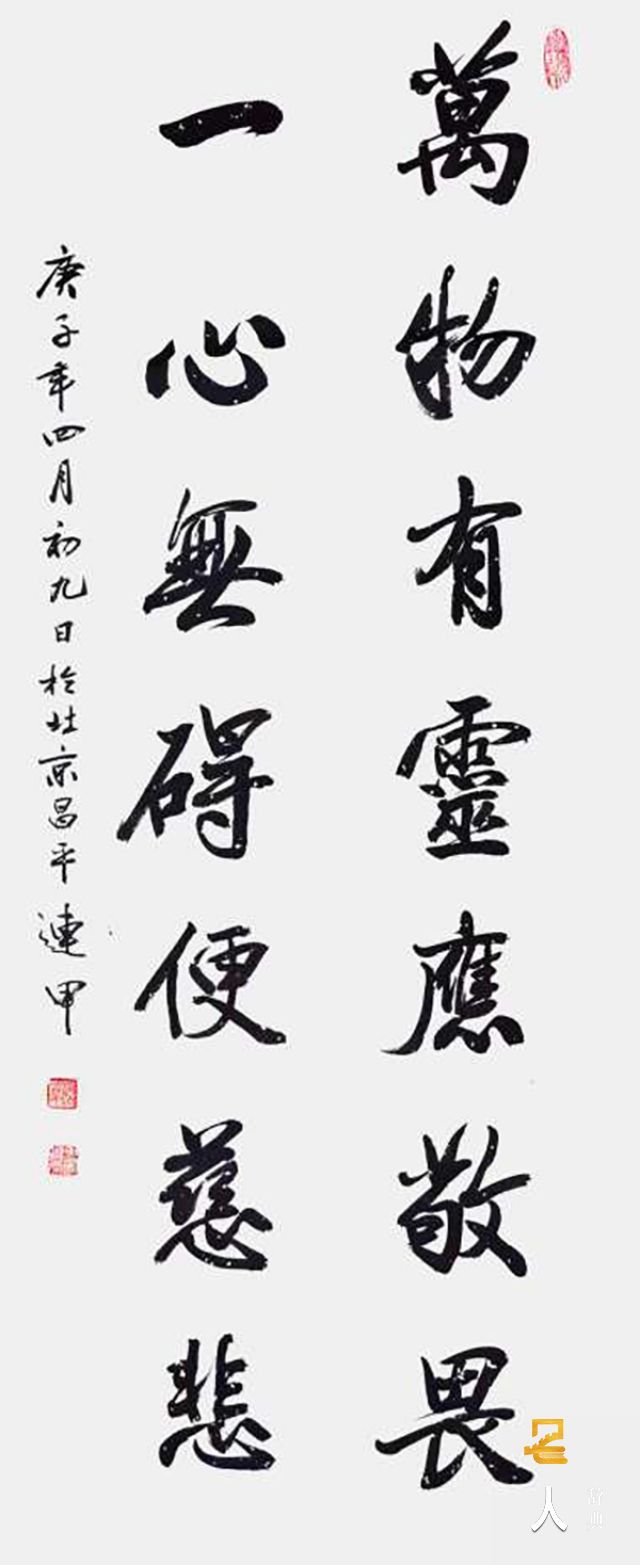 萬物有靈應敬畏
一心無碍便慈悲
庚子年四月初九日於北京昌平連甲
人